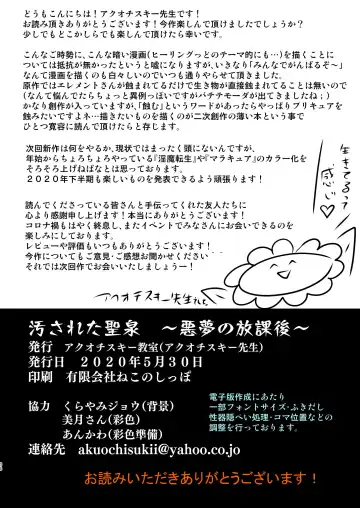 どうもこんにちは！アクオチスキー先生です！
お読み頂きありがとうございます！今作楽しんで頂けましたでしょうか？
少しでもどこかしらでも楽しんで頂けたら幸いです。
こんなご時勢に、こんな暗い漫画(ヒーリングっどのテーマ的にも…)を描くことに
ついては抵抗が無かったというと嘘になりますが、いきなり｢みなでがんばるぞ～｣
なんて漫画を描くのも白々しいのでいつも通りやらせて頂きました。
原作ではエレメントさんが蝕まれてるだけで生き物が直接蝕まれてることは無いので
(なんて悩んでたらちょっと異例っぽいですがバテテモーダが出てきましたね；)
かなり創作が入っていますが、｢蝕む｣というワードがあったらやっぱりプリキュアを
蝕みたいですよネ…描きたいものを描くのが二次創作の薄い本という事で
ひとつ寛容に読んで頂けたらと存じます。
次回新作は何をやるか、現状ではまったく頭にないんですが、
年始からちょろちょろやっている『淫魔転生』や『マラキュア』のカラー化を
そろそろ上げねばなとは思っております。
２０２０年下半期も楽しいものを発表できるよう頑張ります！
読んでくださっている皆さんと手伝ってくれた友人たちに
心より感謝申し上げます！本当にありがとうございます！
コロナ禍もはやく終息し、またイベントでみなさんにお会いできるのを
楽しみにしております。
レビューや評価もいつもありがとうございます！
今作についてもご意見・ご感想お聞かせください…
それでは次回作でお会いいたしましょうー！
生きてるって
感じ♡
アクオチスキー先生
汚された聖泉　～悪夢の放課後～
発行　アクオチスキー教室(アクオチスキー先生)
発行日　２０２０年５月３０日
印刷　有限会社ねこのしっぽ
協力　くらやみジョウ(背景)
美月さん(彩色)
あんかわ(彩色準備)
連絡先　akuochisukii@yahoo.co.jp
電子版作成にあたり
一部フォントサイズ・ふきだし
性器隠ぺい処理・コマ位置などの
調整を行っております。
お読みいただきありがとうございます！